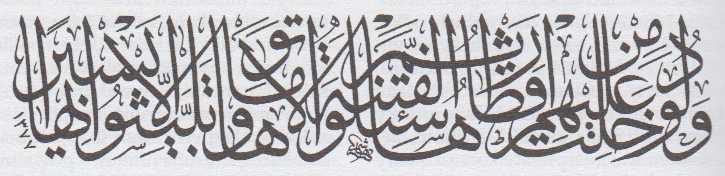 ولو دخلت عليهم من اقطارها ثم سئلوا الفتنة لاتوها وما تلبثوا بها الا يسيرا